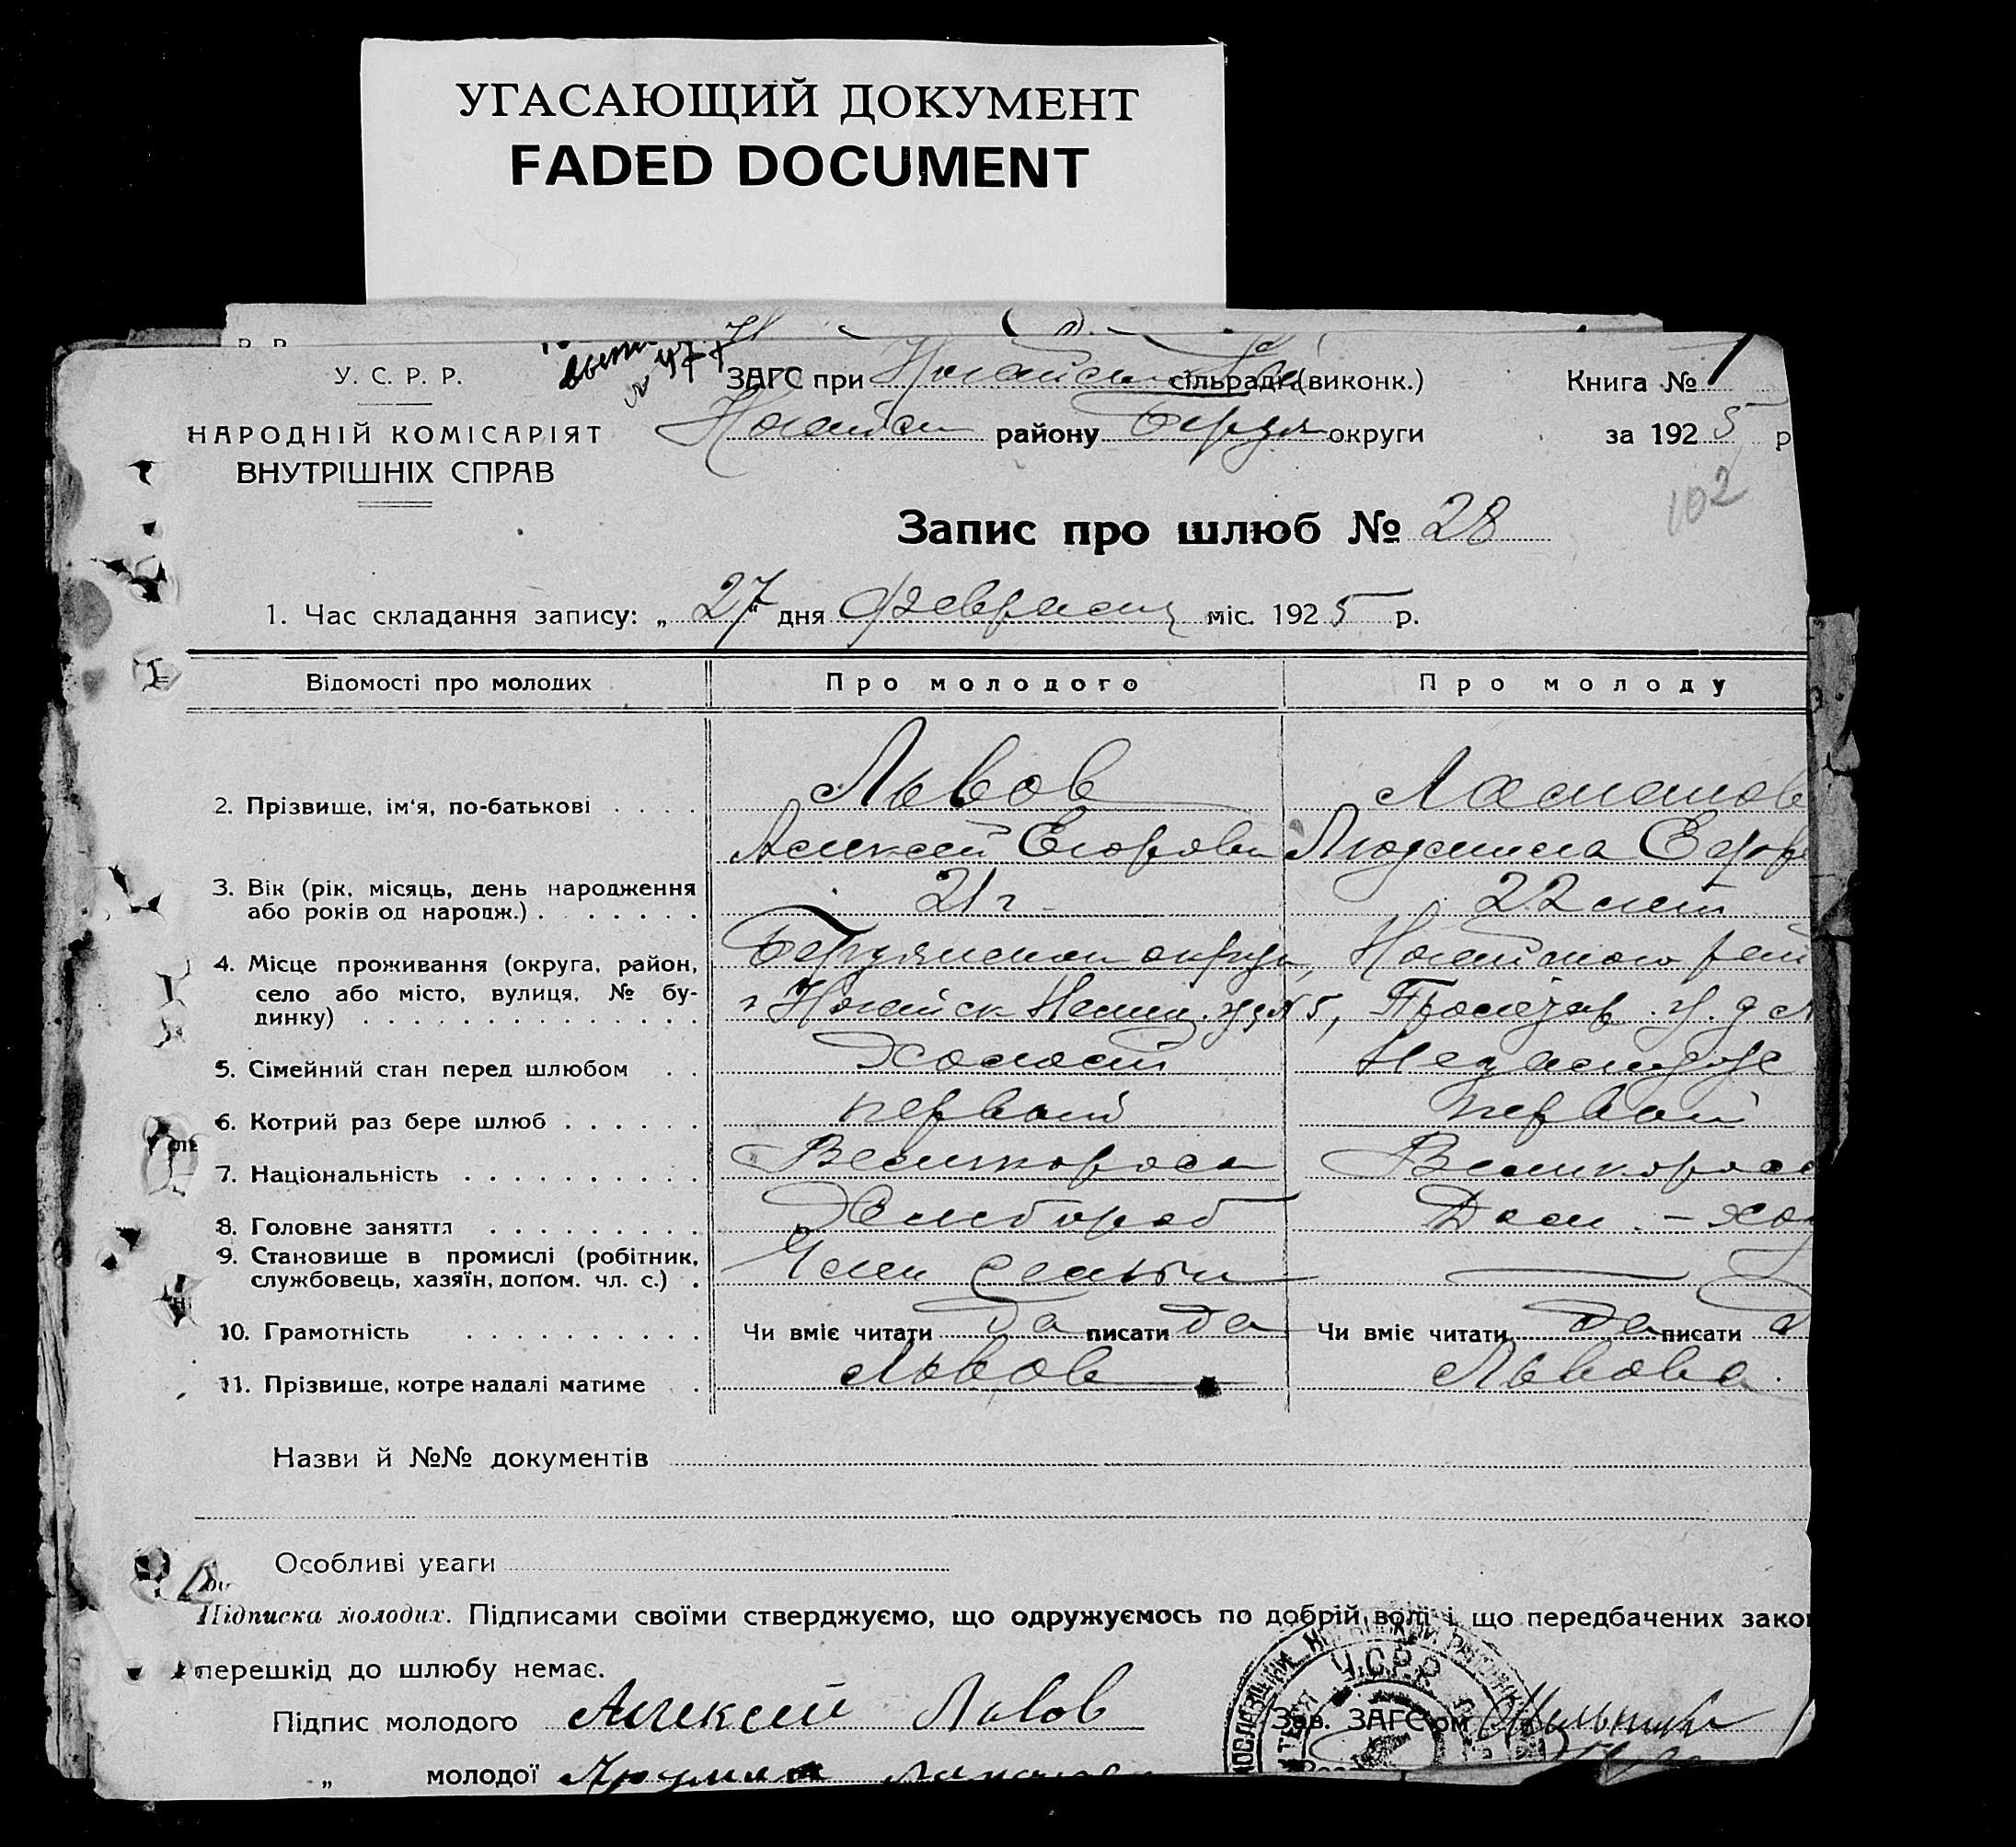 УГАСАЮЩИЙ ДОКУМЕНТ
FADED DOCUMENT
У. С. Р. Р.
НАРОДНІЙ КОМІСАРІЯТ
ВНУТРІШНІХ СПРАВ
ЗАГС при сільраді (виконк.)
району округи
Книга № 1
за 1925 р
102
Запис про шлюб № 28
1. Час складання запису: „ 27 " дня февраля міс. 1925 р.
Відомості про молодих Про молодого Про молоду
2. Прізвище, ім'я, по-батькові . . . . Львов
Алексей Егорови Людмила
3. Вік (рік, місяць, день народження
або років од народж.) . . . . . . . 21 г 22 лет
4. Місце проживання (округа, район,
село або місто, вулиця, № бу-
динку) . . . . . . . . . . . . . . .
Бердянской округи, Ногайского рай
г Ногайск
5. Сімейний стан перед шлюбом . . Холост Незамуж
6. Котрий раз бере шлюб . . . . . . первый первый
7. Національність . . . . . . . . . . Великоросс Великоросс
8. Головне заняття . . . . . . . . . Хлебороб Дом. – хоз
9. Становище в промислі (робітник,
службовець, хазяїн, допом. чл. с.) . Член семьи —
10. Грамотність . . . . . . . . . . Чи вміє читати да писати да Чи вміє читати да писати д
11. Прізвище, котре надалі матиме . . Львов Львова.
Назви й №№ документів
Особливі уваги
Підписка молодих. Підписами своїми стверджуємо, що одружуємось по добрій волі і що передбачених зако
перешкід до шлюбу немає.
Підпис молодого Алексей Львов
Зав. ЗАГС'ом
У.С.Р.Р.
„ молодої